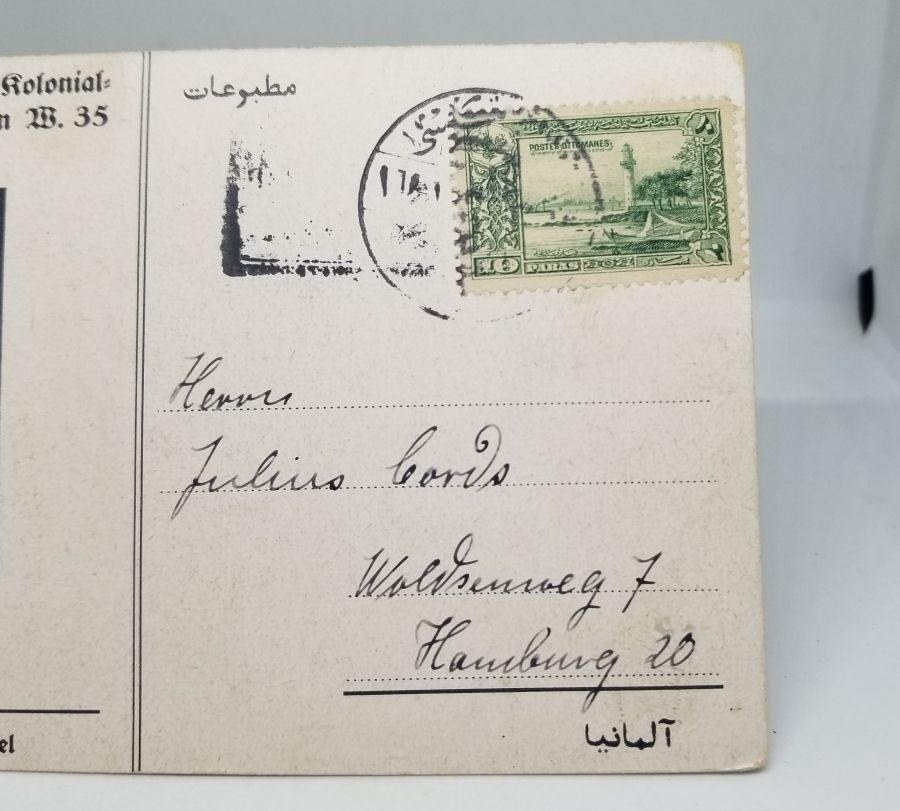 Kolonial=
W. 35
مطبوعات
POSTES OTTOMANES
10 PARAS
Herrn
Julius Cords
Woldsenweg 7
Hamburg 20
آلمانيا